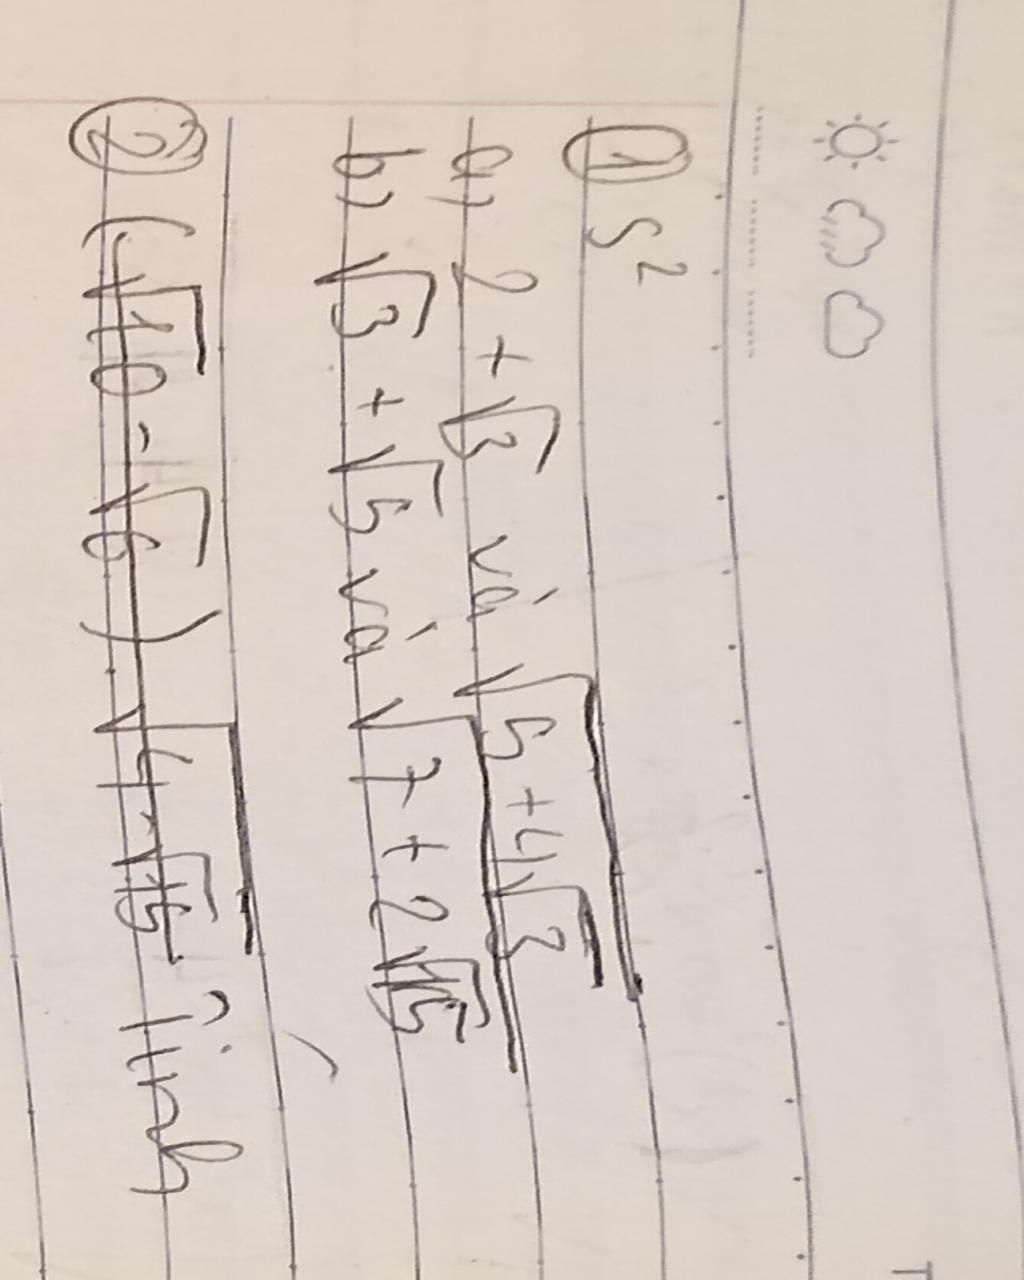 ① S²
a) 2 + √3 và √(5 + 4√3)
b) √3 + √5 và √(7 + 2√15)
② (√10 - √6) √(4 - √15)